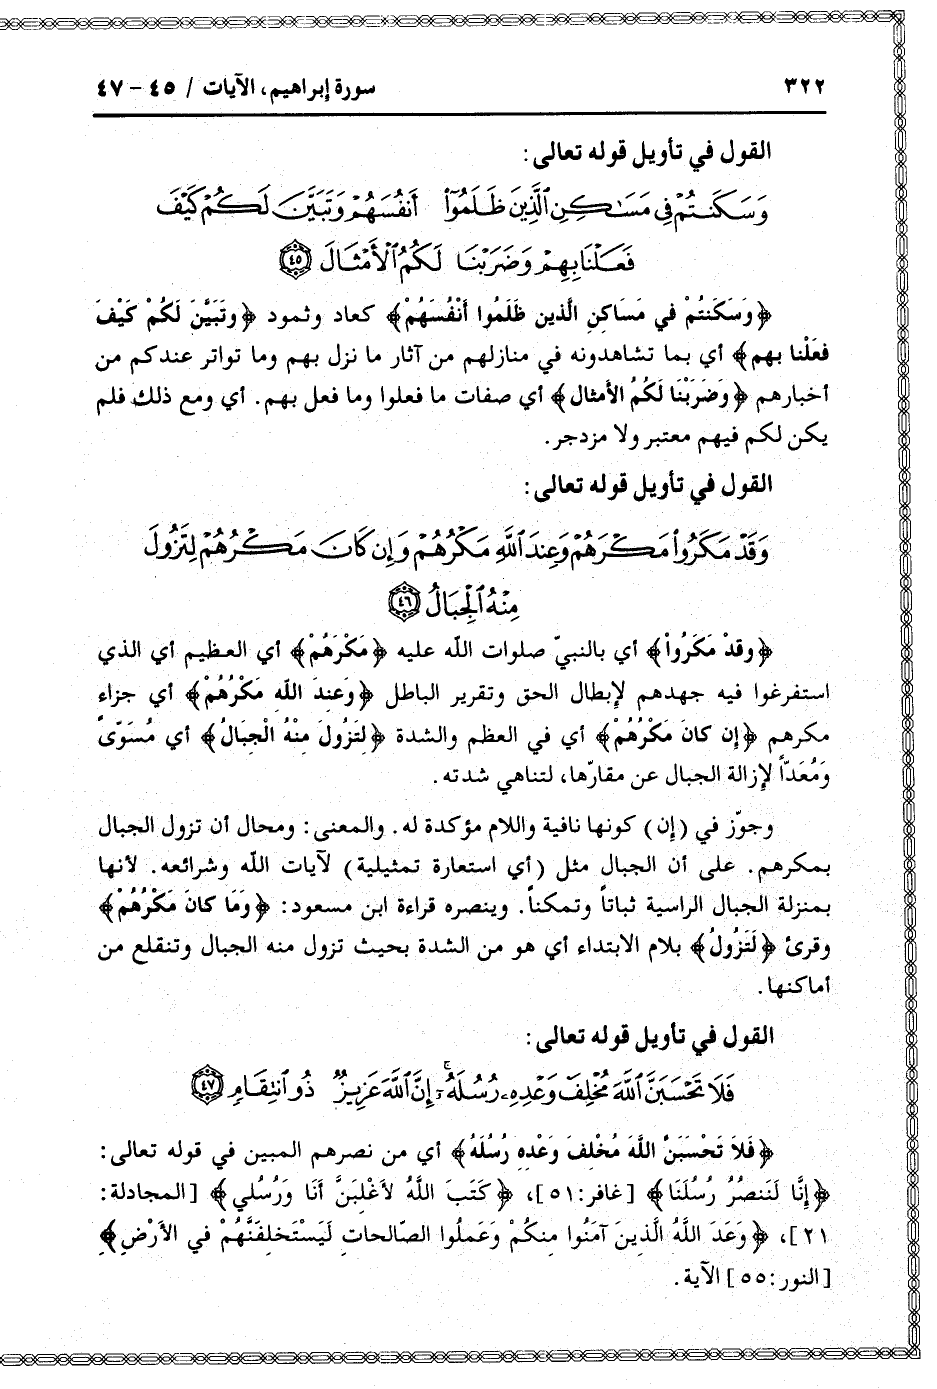 ٣٢٢ سورة إبراهيم، الآيات / ٤٥ - ٤٧
القول في تأويل قوله تعالى:
وَسَكَنتُمْ فِي مَسَٰكِنِ ٱلَّذِينَ ظَلَمُوٓا۟ أَنفُسَهُمْ وَتَبَيَّنَ لَكُمْ كَيْفَ
فَعَلْنَا بِهِمْ وَضَرَبْنَا لَكُمُ ٱلْأَمْثَالَ ﴿٤٥﴾
﴿وَسَكَنتُمْ في مَسَاكنِ الَّذين ظَلَمُوا أَنْفُسَهُمْ﴾ كعاد وثمود ﴿وتَبَيَّنَ لَكُمْ كَيْفَ
فعَلْنا بهم﴾ أي بما تشاهدونه في منازلهم من آثار ما نزل بهم وما تواتر عندكم من
أخبارهم ﴿وَضَرَبْنَا لَكُمُ الأمثال﴾ أي صفات ما فعلوا وما فعل بهم. أي ومع ذلك فلم
يكن لكم فيهم معتبر ولا مزدجر.
القول في تأويل قوله تعالى:
وَقَدْ مَكَرُوا۟ مَكْرَهُمْ وَعِندَ ٱللَّهِ مَكْرُهُمْ وَإِن كَانَ مَكْرُهُمْ لِتَزُولَ
مِنْهُ ٱلْجِبَالُ ﴿٤٦﴾
﴿وقدْ مَكَرُواْ﴾ أي بالنبيّ صلوات اللّه عليه ﴿مَكْرَهُمْ﴾ أي العظيم أي الذي
استفرغوا فيه جهدهم لإبطال الحق وتقرير الباطل ﴿وَعِندَ اللّه مَكْرُهُمْ﴾ أي جزاء
مكرهم ﴿إن كانَ مَكْرُهُمْ﴾ أي في العظم والشدة ﴿لتَزُولَ منْهُ الْجبَالُ﴾ أي مُسَوّىً
وَمُعَدّاً لإزالة الجبال عن مقارّها، لتناهي شدته.
وجوّز في (إن) كونها نافية واللام مؤكدة له. والمعنى: ومحال أن تزول الجبال
بمكرهم. على أن الجبال مثل (أي استعارة تمثيلية) لآيات اللّه وشرائعه. لأنها
بمنزلة الجبال الراسية ثباتاً وتمكناً. وينصره قراءة ابن مسعود: ﴿وَمَا كانَ مَكْرُهُمْ﴾
وقرئ ﴿لَتَزُولُ﴾ بلام الابتداء أي هو من الشدة بحيث تزول منه الجبال وتنقلع من
أماكنها.
القول في تأويل قوله تعالى:
فَلَا تَحْسَبَنَّ ٱللَّهَ مُخْلِفَ وَعْدِهِۦ رُسُلَهُۥٓ ۚ إِنَّ ٱللَّهَ عَزِيزٌ ذُو ٱنتِقَامٍ ﴿٤٧﴾
﴿فَلاَ تَحْسَبَنَّ اللَّهَ مُخْلفَ وَعْده رُسُلَهُ﴾ أي من نصرهم المبين في قوله تعالى:
﴿إنَّا لَنَنصُرُ رُسُلَنَا﴾ [غافر:٥١]، ﴿كَتَبَ اللَّهُ لأَغْلبَنَّ أَنَا وَرُسُلي﴾ [المجادلة:
٢١]، ﴿وَعَدَ اللَّهُ الَّذينَ آمَنُوا منكُمْ وَعَملُوا الصّالحات لَيَسْتَخلفَنَّهُمْ في الأَرْضِ﴾
[النور:٥٥] الآية.